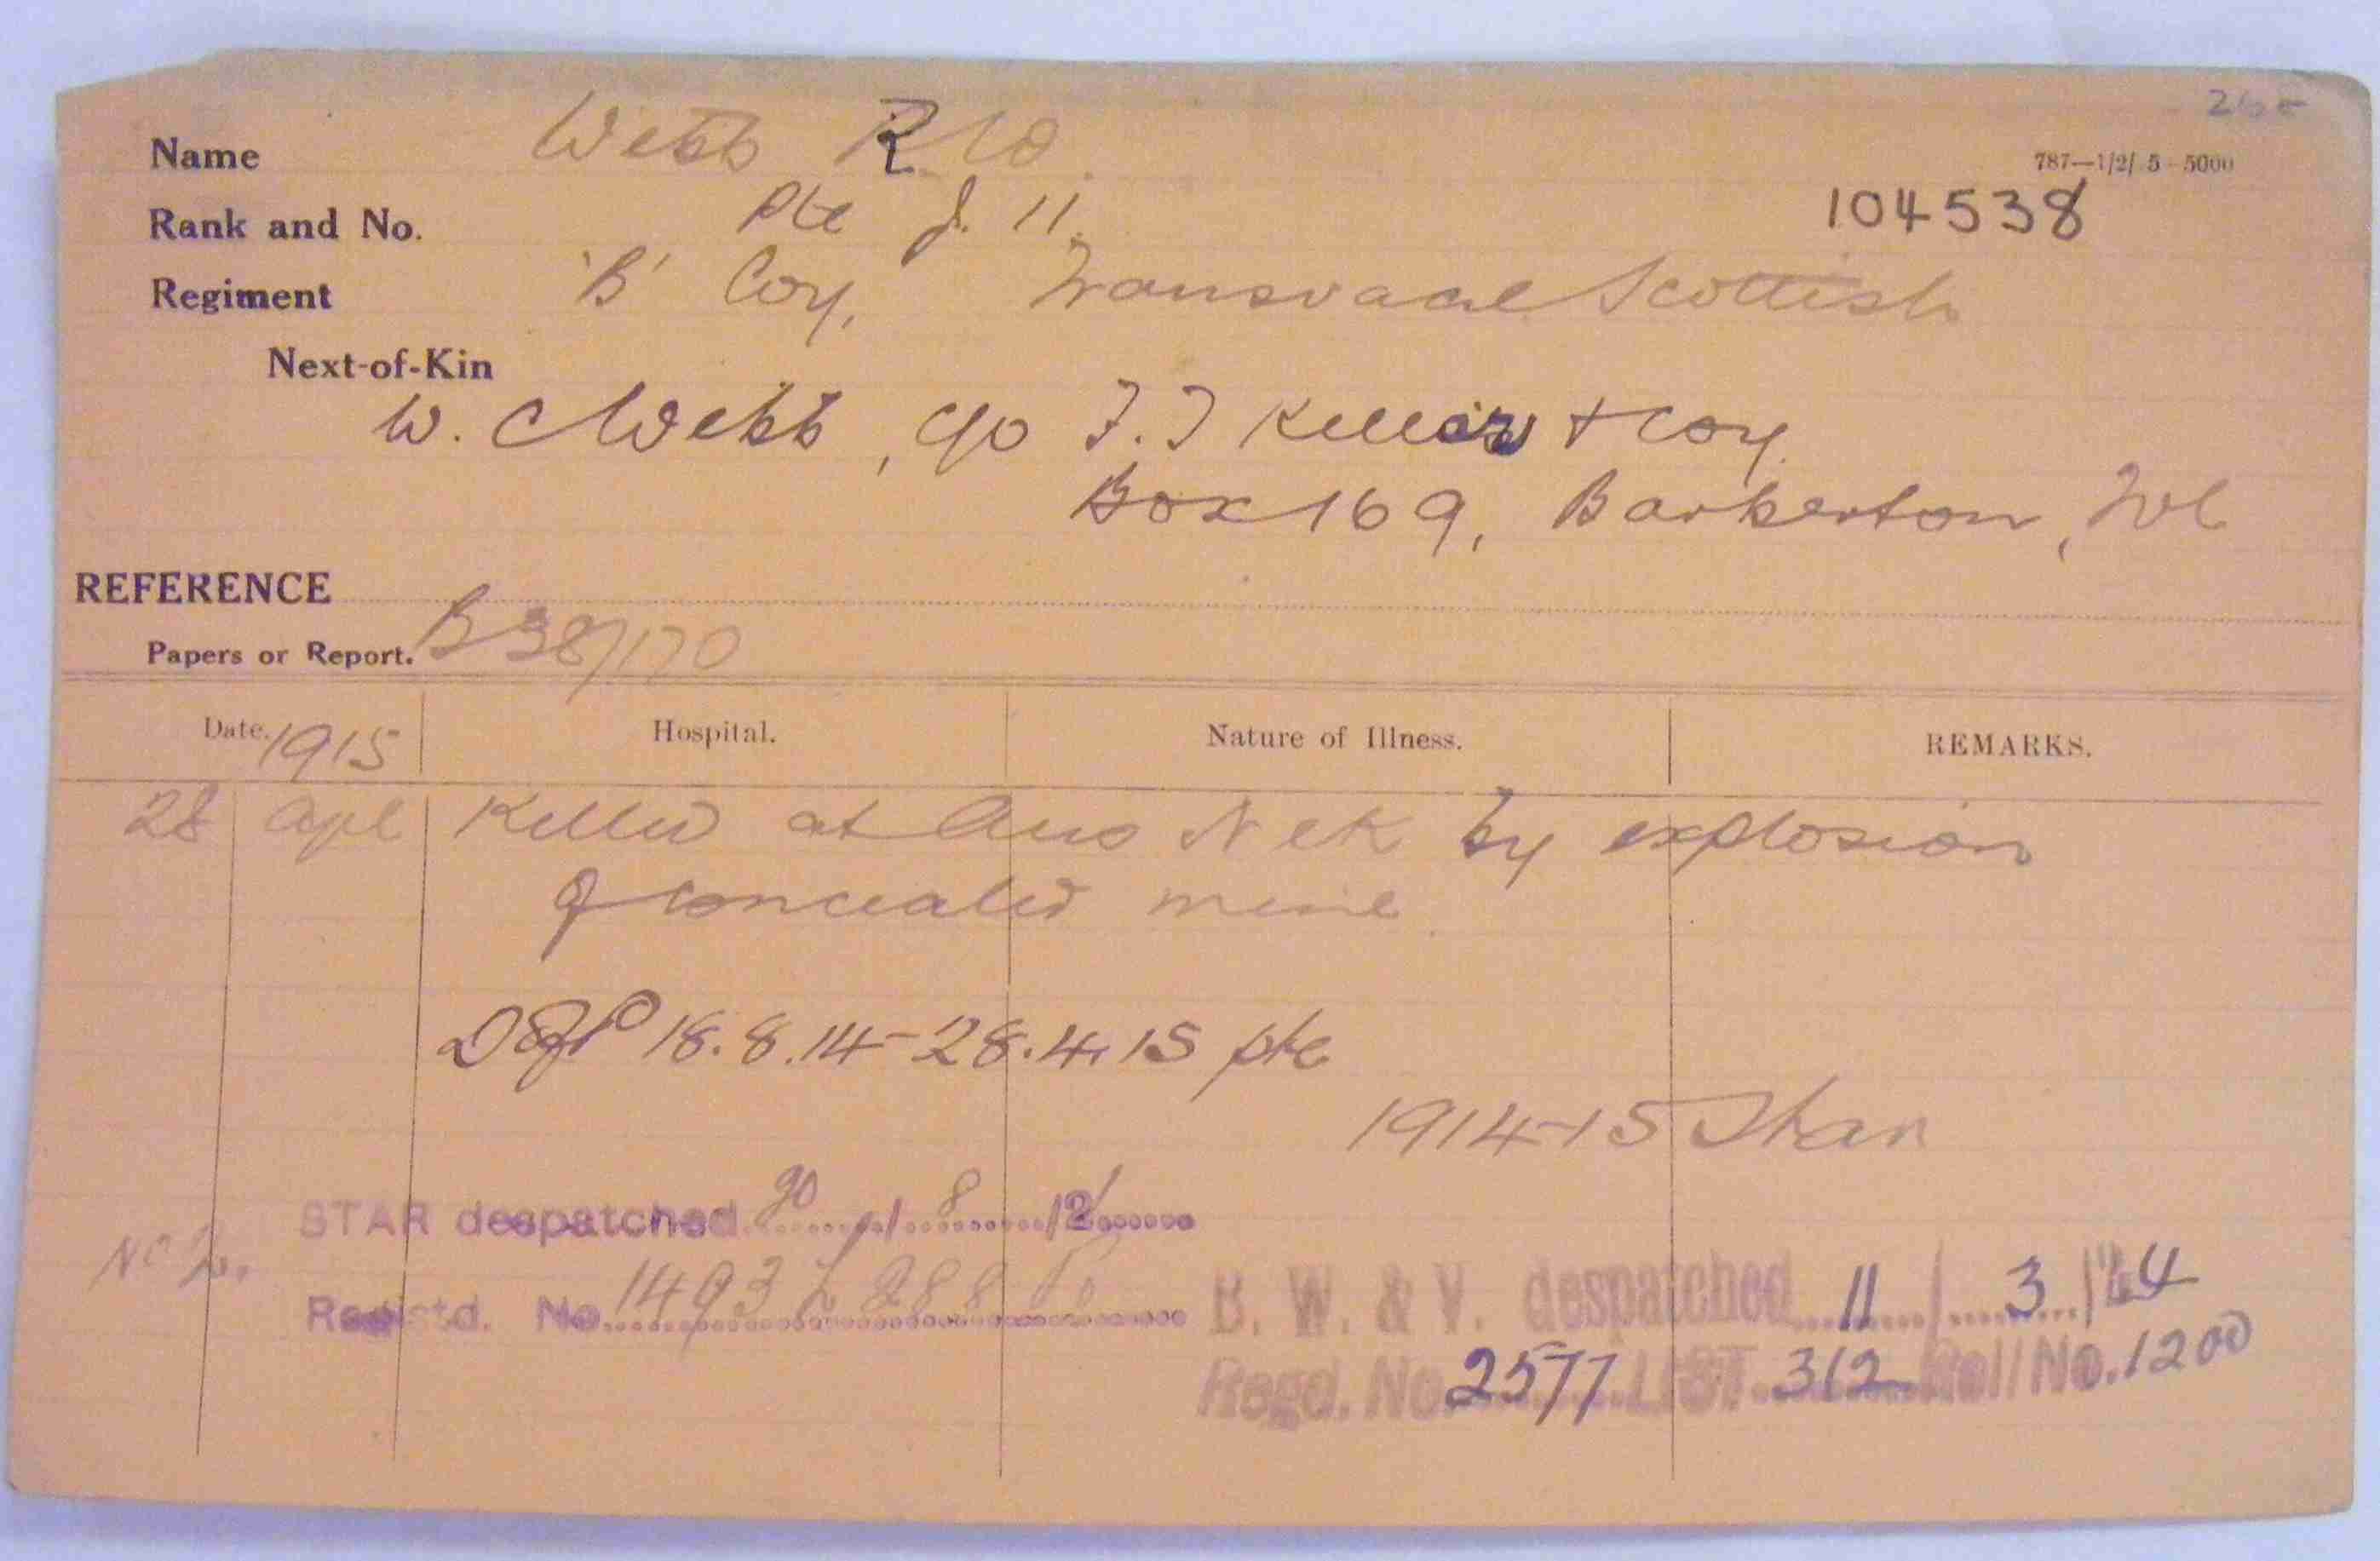 Name Webb R W
787—1/2/ 5—5000
Rank and No. Pte J. 11. 104538
Regiment 'B' Coy, Transvaal Scottish
Next-of-Kin
W. C Webb, c/o F. J Keller & Coy.
Box 169, Barberton, Tvl
REFERENCE
Papers or Report. B38/170
Date. 1915 Hospital. Nature of Illness. REMARKS.
28 Apl Killed at Aus Nek by explosion
of concealed mine
18.8.14 - 28.4.15 pte
1914-15 Star
STAR despatched / 8 /21
Registd. No. 1493
B. W. & V. despatched 11 / 3 /24
Regd. No. 2577 LIST 312 Roll No. 1200